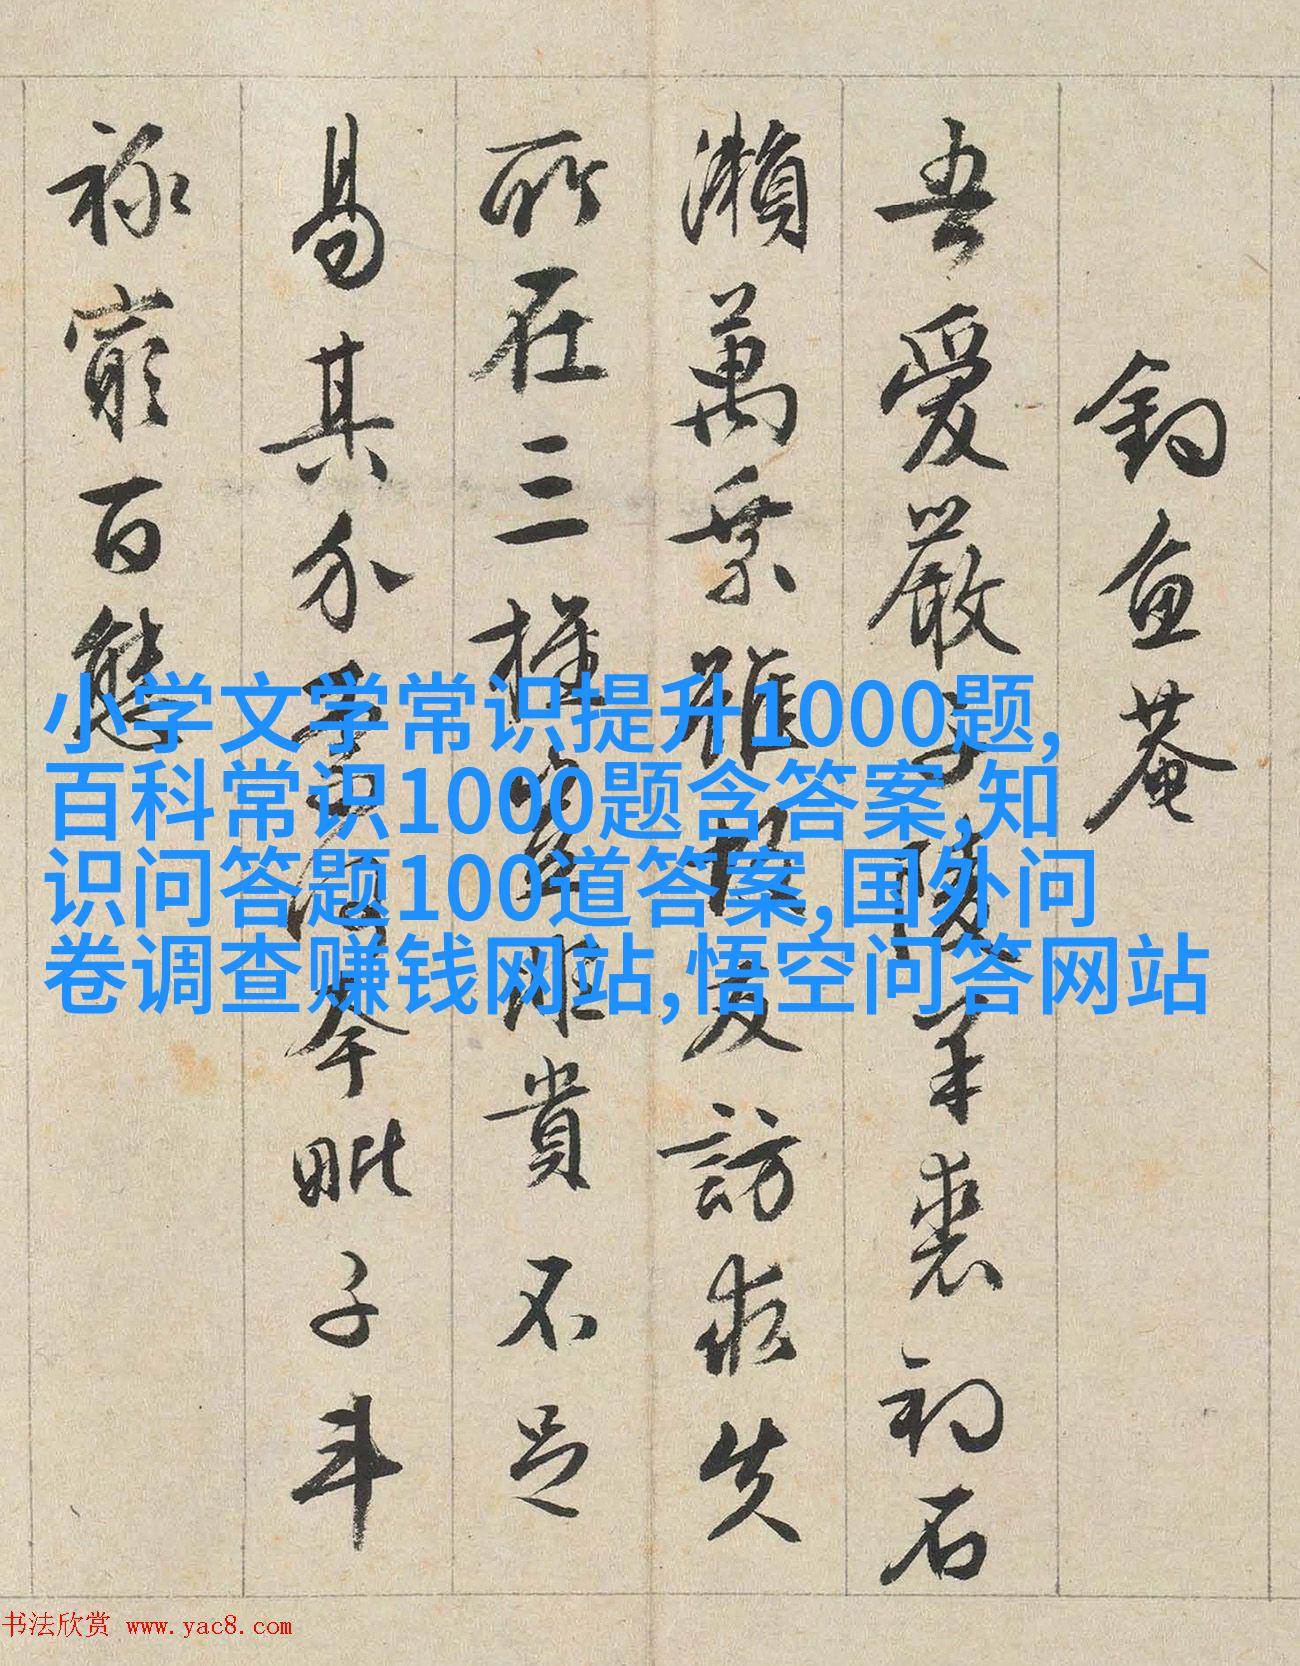 釣魚菴
吾愛嚴子陵羊裘石
瀨萬乘雖故友訪求失
所在三豈非貴不足
易其介何夸毗子斗
祿窮百態
小学文学常识提升1000题,
百科常识1000题含答案,知
识问答题100道答案,国外问
卷调查赚钱网站,悟空问答网站
书法欣赏 www.yac8.com